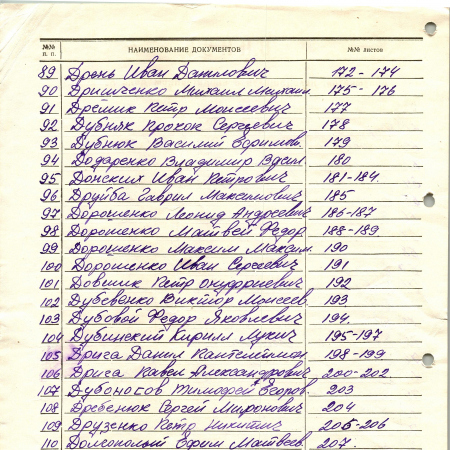 №№ п. п. НАИМЕНОВАНИЕ ДОКУМЕНТОВ №№ листов
89 Дронь Иван Данилович 172-174
90 Михаил 175-176
91 Дремик Петр Моисеевич 177
92 Дубняк Прокоп Сергеевич 178
93 Дубнюк Василий Ефимов. 179
94 Бодаренко Владимир 180
95 Донских Иван Петрович 181-184.
96 Друйба Гаврил Максимович 185
97 Дорошенко Леонид Андреевич 186-187
98 Дорошенко Матвей Федор 188-189
99 Дорошенко Максим Максим. 190
100 Дорошенко Иван Сергеевич 191
101 Довшик Петр Онуфриевич 192
102 Дубевенко Виктор Моисеев. 193
103 Дубовой Федор Яковлевич 194.
104 Дубинский Кирилл Лукич 195-197
105 Дрига Данил Пантелеймон 198-199
106 Дрига Павел Александрович 200-202
107 Дубоносов Тимофей Егоров. 203
108 Древенюк Сергей Миронович 204
109 Друзенко Петр Никитич 205-206
110 Долгополый Ефим Матвеев 207.